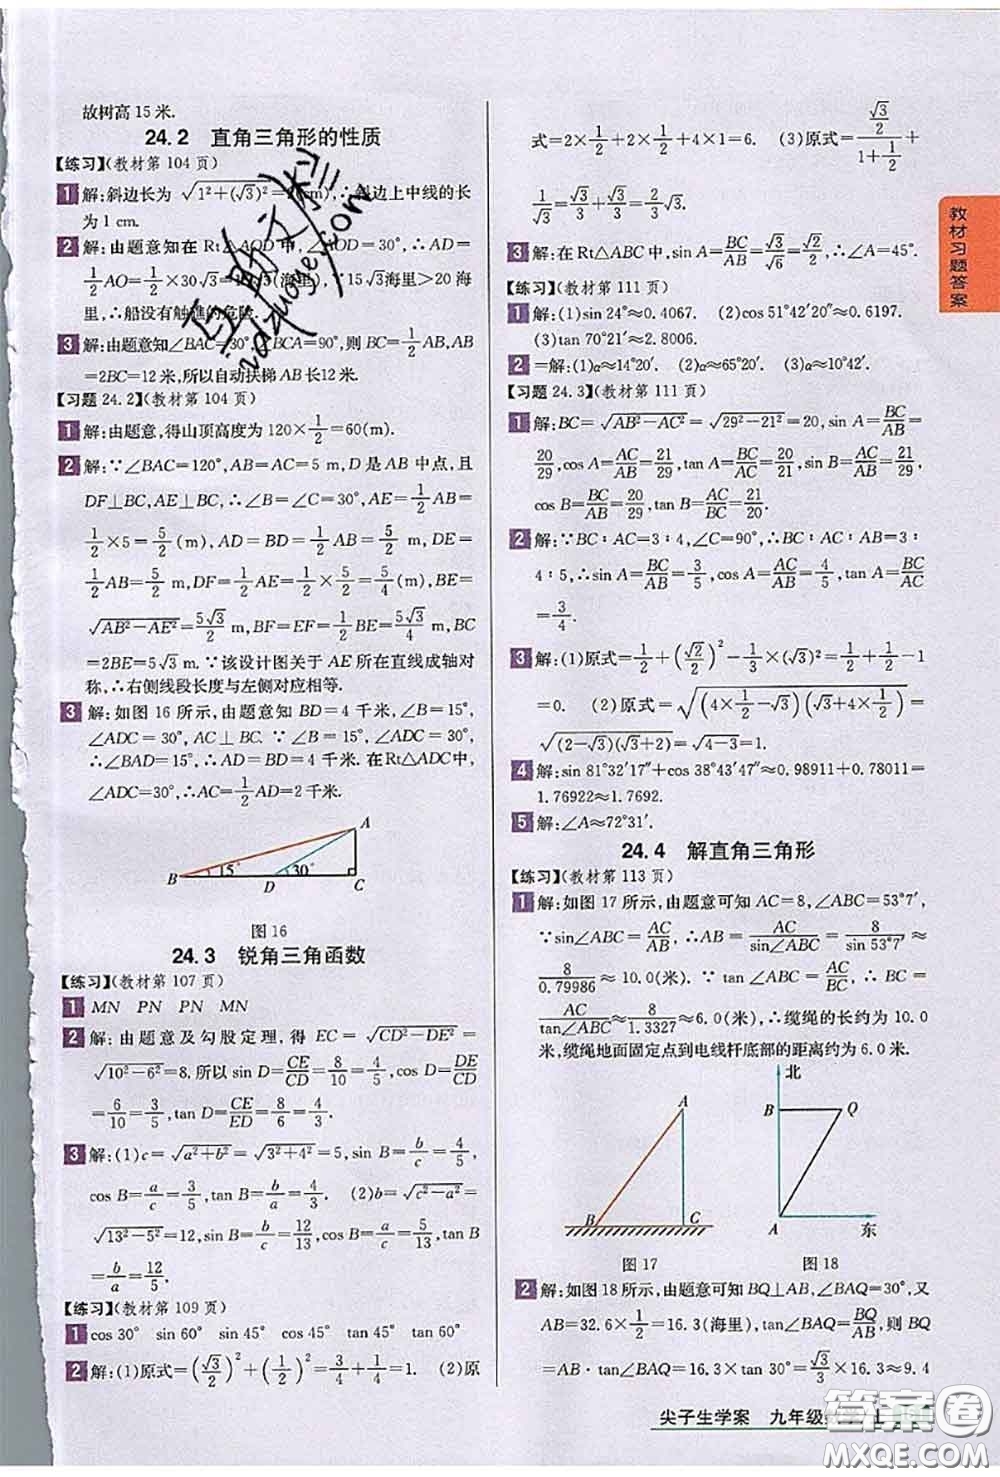 故树高 15 米.
24.2 直角三角形的性质
【练习】(教材第 104 页)
1 解:斜边长为 √(1²+(√3)²)=2(cm),∴斜边上中线的长
为 1 cm.
2 解:由题意知在 Rt△AOD 中,∠AOD=30°,∴AD=
1/2AO=1/2×30√3=15√3(海里),∵15√3海里>20 海
里,∴船没有触礁的危险.
3 解:由题意知∠BAC=30°,∠BCA=90°,则 BC=1/2AB,AB
=2BC=12 米,所以自动扶梯 AB 长12米.
【习题 24.2】(教材第 104 页)
1 解:由题意,得山顶高度为 120×1/2=60(m).
2 解:∵∠BAC=120°,AB=AC=5 m,D 是 AB 中点,且
DF⊥BC,AE⊥BC,∴∠B=∠C=30°,AE=1/2AB=
1/2×5=5/2(m),AD=BD=1/2AB=5/2 m,DE=
1/2AB=5/2 m,DF=1/2AE=1/2×5/2=5/4(m),BE=
√(AB²-AE²)=5√3/2(m),BF=EF=1/2BE=5√3/4 m,BC
=2BE=5√3 m.∵该设计图关于 AE 所在直线成轴对
称,∴右侧线段长度与左侧对应相等.
3 解:如图 16 所示,由题意知 BD=4 千米,∠B=15°,
∠ADC=30°,AC⊥BC.∴∠BAD=∠ADC-∠B=15°,
∴∠BAD=∠B,∴AD=BD=4 千米.在Rt△ADC中,
∠ADC=30°,∴AC=1/2AD=2 千米.
A
B 15° D 30° C
图 16
24.3 锐角三角函数
【练习】(教材第 107 页)
1 MN PN PN MN
2 解:由题意及勾股定理,得 EC=√(CD²-DE²)=
√(10²-6²)=8.所以 sin D=CE/CD=8/10=4/5,cos D=DE/CD=
6/10=3/5,tan D=CE/ED=8/6=4/3.
3 解:(1)c=√(a²+b²)=√(3²+4²)=5,sin B=b/c=4/5,
cos B=a/c=3/5,tan B=b/a=4/3. (2)b=√(c²-a²)=
√(13²-5²)=12,sin B=b/c=12/13,cos B=a/c=5/13,tan B
=b/a=12/5.
【练习】(教材第 109 页)
1 cos 30° sin 60° sin 45° cos 45° tan 45° tan 60°
2 解:(1)原式=(√3/2)²+(1/2)²=3/4+1/4=1. (2)原
式=2×1/2+2×1/2+4×1/2=4. (3)原式=(√3/2)/(1+1/2)+
1/√3=√3/3+√3/3=2/3√3.
3 解:在 Rt△ABC 中,sin A=BC/AB=√3/√6=√2/2,∴∠A=45°.
【练习】(教材第 111 页)
1 解:(1)sin 24°≈0.4067. (2)cos 51°42′20″≈0.6197.
(3)tan 70°21′≈2.8006.
2 =解:(1)α≈14°20′. (2)α≈65°20′. (3)α≈10°42′.
【习题 24.3】(教材第 111 页)
1 解:BC=√(AB²-AC²)=√(29²-21²)=20,sin A=BC/AB=
20/29,cos A=AC/AB=21/29,tan A=BC/AC=20/21,sin B=AC/AB=21/29,
cos B=BC/AB=20/29,tan B=AC/BC=21/20.
2 解:∵BC∶AC=3∶4,∠C=90°,∴BC∶AC∶AB=3∶
4∶5,∴sin A=BC/AB=3/5,cos A=AC/AB=4/5,tan A=BC/AC
=3/4.
3 解:(1)原式=1/2+(√2/2)²-1/3×(√3)²=1/2+1/2-1
=0. (2)原式=√((4×1/2-√3)(4×1/2×√3+2))=
√((2-√3)(√3+2))=1.
4 解:sin 81°32′17″+cos 38°43′47″≈0.98911+0.78011=
1.76922≈1.7692.
5 解:∠A≈72°31′.
24.4 解直角三角形
【练习】(教材第 113 页)
1 解:如图 17 所示,由题意可知 AC=8,∠ABC=53°7′,
∵sin∠ABC=AC/AB,∴AB=AC/sin∠ABC=8/sin 53°7′≈
8/0.79986≈10.0(米).∵tan∠ABC=AC/BC,∴BC=
AC/tan∠ABC≈8/1.3327≈6.0(米),∴缆绳的长约为 10.0
米,缆绳地面固定点到电线杆底部的距离约为 6.0 米.
A
B C
图 17
北
B Q
A 东
图 18
2 解:如图 18 所示,由题意可知 BQ⊥AB,∠BAQ=30°,又
AB=32.6×1/2=16.3(海里),tan∠BAQ=BQ/AB,则 BQ
=AB·tan∠BAQ=16.3×tan 30°=16.3×√3/3≈9.4
教材习题答案
互助文档
尖子生学案 九年级
答案圈
MXQE.COM